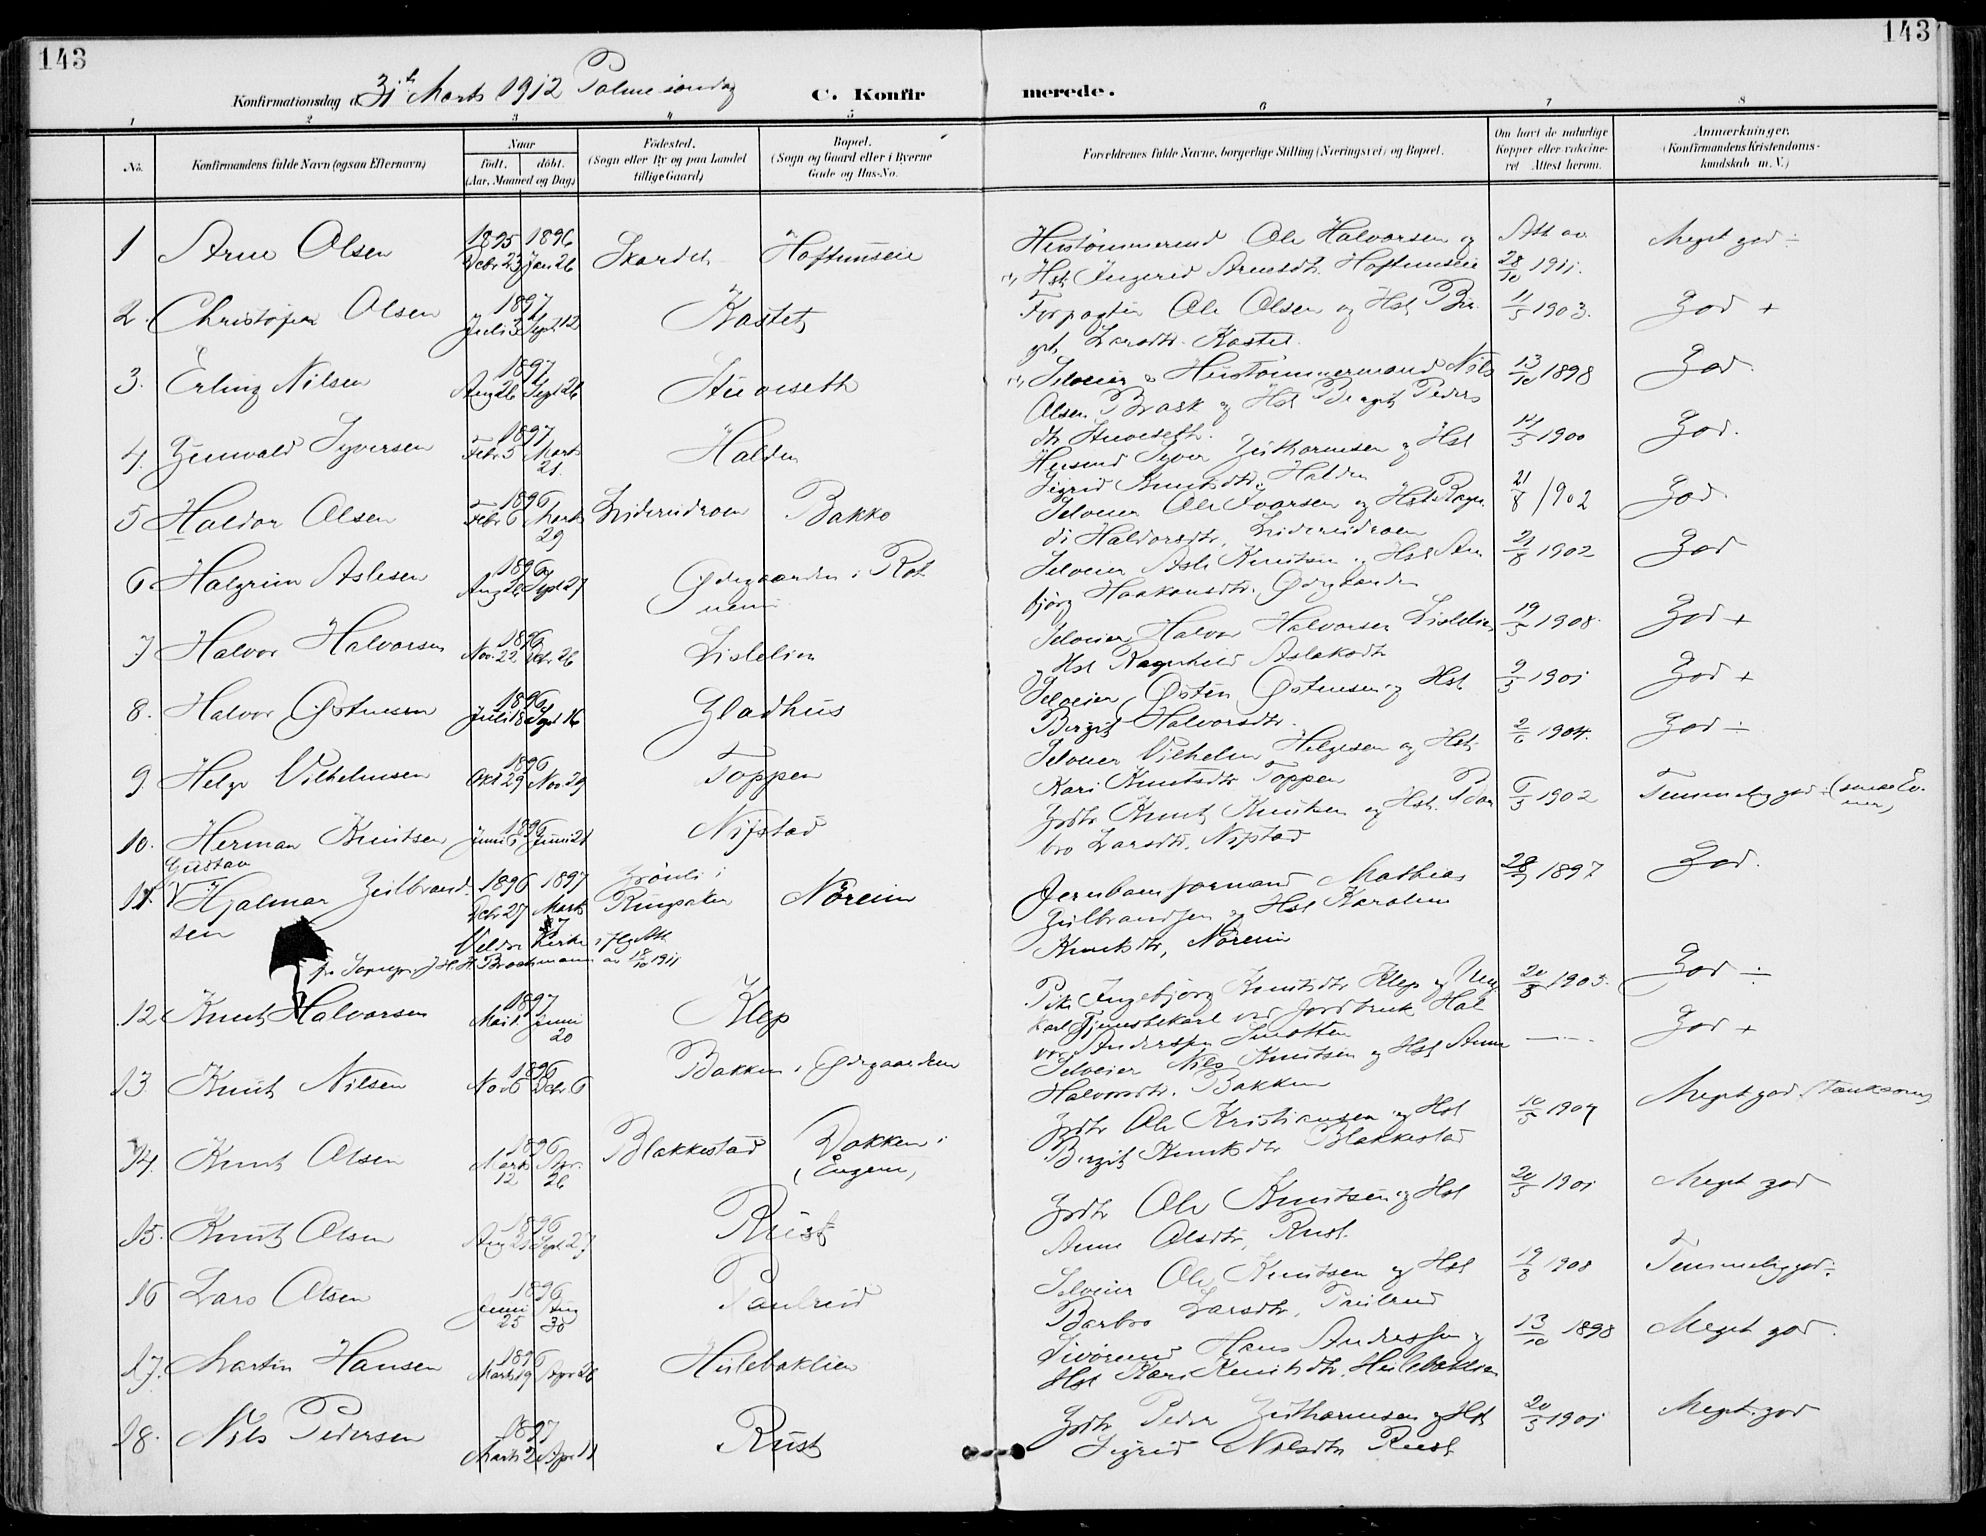 143
143
Konfirmationsdag d. 31te Marts 1912 Palmesøndag
C. Konfir
merede.
1 2 3 4 5 6 7 8
No.
Konfirmandens fulde Navn (ogsaa Efternavn)
Naar
Födt. döbt.
(Aar, Maaned og Dag)
Födested.
(Sogn eller By og paa Landet
tillige Gaard)
Bopæl.
(Sogn og Gaard eller i Byerne
Gade og Hus-No.
Forældrenes fulde Navne, borgerlige Stilling (Næringsvei) og Bopæl.
Om havt de naturlige
Kopper eller vakcine-
ret Attest herom.
Anmærkninger.
(Konfirmandens Kristendoms-
kundskab m. V.)
1 Arne Olsen 1895 Decbr 23 1896 Jan 26 Skardet Hoftunseie
Hustømmermd Ole Halvorsen og
Hst Ingerid Arnesdtr Hoftunseie
Att av 28/10 1911. Meget god ÷
2. Christofer Olsen 1897 Juli 3 Sept 12 Kastet
Forpagter Ole Olsen og Hst Bir
git Larsdtr. Kastet.
11/5 1903. God +
3. Erling Nilsen 1897 Aug 26 Sept 26 Stuveseth
Selveier & Hustømmermand Nils
Olsen Brask og Hst Bergit Peders
dtr Stuveseth.
13/10 1898 God.
4. Gunvald Syversen 1897 Febr 5 Marts 21. Halden
Husmd Syver Guthormsen og Hst
Sigrid Knutsdtr. Halden
14/5 1900 God.
5 Haldor Olsen 1896 Febr 6 Marts 29 Liderudroen Bakko
Selveier Ole Ivarsen og Hst Ragn
di Haldorsdtr. Liderudroen
21/8 1902 God
6 Halgrim Aslesen 1896 Aug 26 Sept 27 Ødegaarden i Rot
nem.
Selveier Asle Knutsen og Hst An
bjørg Haakonsdtr. Ødegaarden
21/8 1902 God
7 Halvor Halvorsen 1896 Nov. 22 Dcbr 26 Lislelien
Selveier Halvor Halvorsen Lislelien
og Hst Ragnhild Aslaksdtr
19/5 1908. God +
8. Halvor Østensen 1896 Juli 18 Sept 16 Gladhus
Selveier Østen Østensen og Hst
Birgit Halvorsdtr.
9/5 1901 God +
9 Helge Vilhelmsen 1896 Okt 29 Nov. 29 Toppen
Selveier Vilhelm Helgesen og Hst.
Kari Knutsdtr Toppen
2/6 1904. God ÷
10. Herman Knutsen 1896 Juni 6 Juni 21 Nystad
Grdbr Knut Knutsen og Hst. Bar
bro Larsdtr. Nystad
6/5 1902 Temmelig god ÷ (smaa Ev-
ner)
Gustav
11. Hjalmar Gulbrand
sen 1896 Dcbr 27 1897 Marts Grønli i
Ringsaker Nøreim
Jernbaneformand Mathias
Gulbrandsen og Hst Karoline
Knutsdtr, Nøreim
28/9 1897 God.
Veldre Kirke iflg Att
fra Sognepr. J. H. H. Brochmann av 18/10 1911
12 Knut Halvorsen 1897 Mai 1. Juni 20 Klep
Pike Ingebjørg Knutsdtr Klep og Ung
karl Tjenestekarl ved Jordbruk Hal
vor Anderssen Smotten
20/8 1905. God ÷
13 Knut Nilsen 1896 Nov 6 Dcbr 6 Bakken i Ødegaarden
Selveier Nils Knutsen og Hst Anne
Halvorsdtr. Bakken
God +
14. Knut Olsen 1896 Marts 12 Apr. 26 Blakkestad Dokken i
(Engene)
Grdbr Ole Kristiansen og Hst
Birgit Knutsdtr Blakkestad
10/5 1907 Meget god (tanksom)
15. Knut Olsen 1896 Aug 21 Sept 27 Rust
Grdbr Ole Knutsen og Hst
Anne Olsdtr, Rust.
20/5 1901 Meget god
16 Lars Olsen 1896 Juni 25 Aug 30 Paulrud
Selveier Ole Knutsen og Hst
Barbro Larsdtr, Paulrud
19/8 1908 Temmelig god ÷
17. Martin Hansen 1896 Marts 19 Apr 26 Heilebaklien
Livørmd Hans Andressen og
Hst Kari Knutsdtr. Heilebaklien
13/10 1898 Meget god.
18. Nils Pedersen 1897 Marts 2 Apr 11 Rust
Grdbr Peder Guthormsen og Hst
Sigrid Nilsdtr Rust
20/5 1901 Meget god